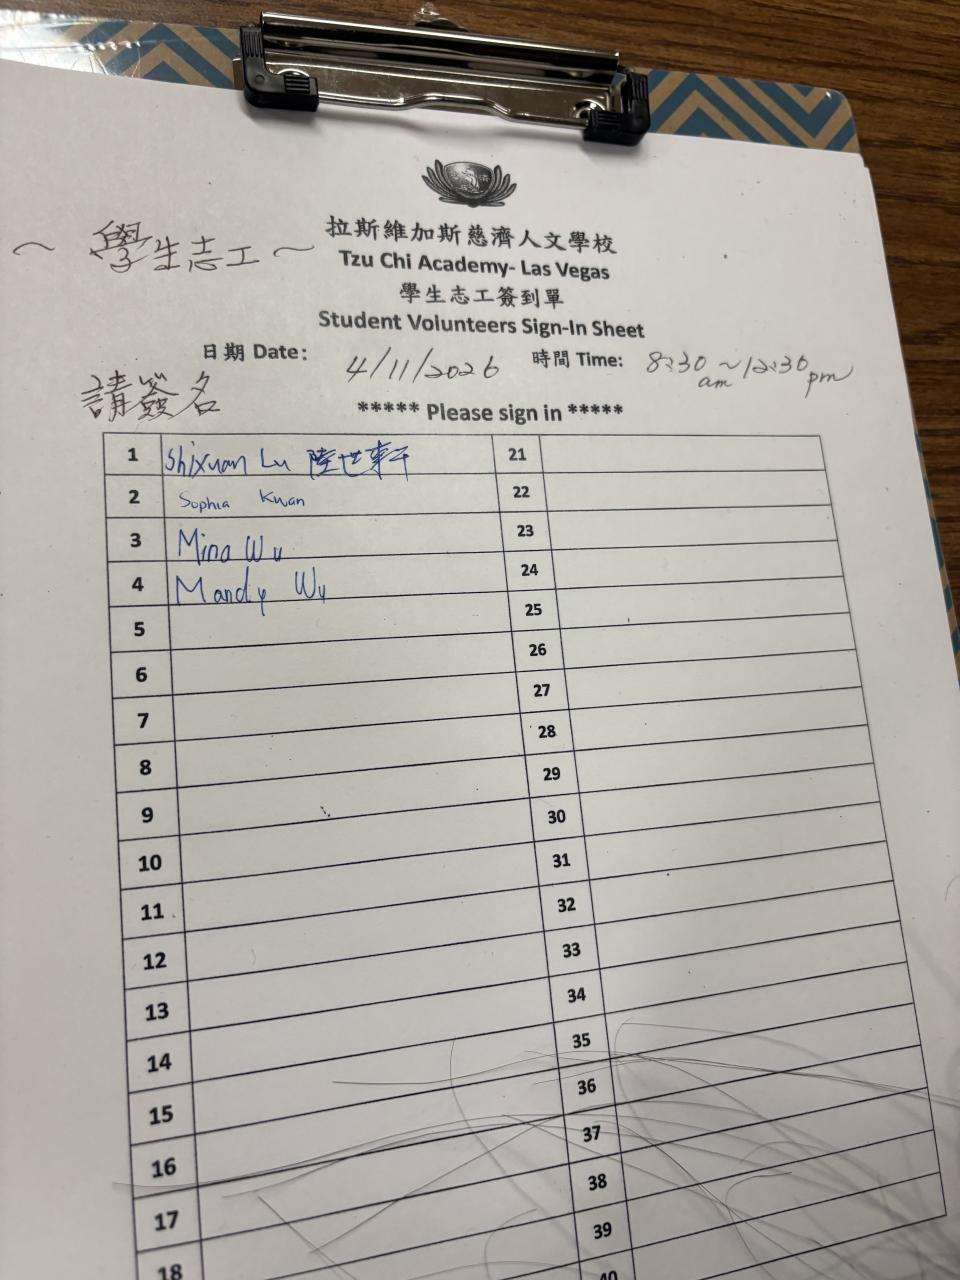 ~ 學生志工 ~
拉斯維加斯慈濟人文學校
Tzu Chi Academy- Las Vegas
學生志工簽到單
Student Volunteers Sign-In Sheet
日期 Date: 4/11/2026 時間 Time: 8:30 am ~ 12:30 pm
請簽名
***** Please sign in *****
1 Shixuan Lu 陸世軒 21
2 Sophia Kwan 22
3 Mina Wu 23
4 Mandy Wu 24
5 25
6 26
7 27
8 28
9 29
10 30
11 31
12 32
13 33
14 34
15 35
16 36
17 37
18 38
39
40